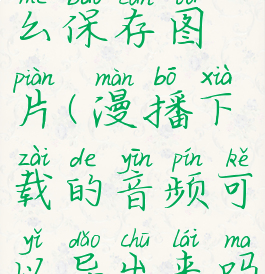 me bǎo cún tú
么保存图
piàn màn bō xià
片(漫播下
zài de yīn pín kě
载的音频可
yǐ dǎo chū lái ma
以导出来吗